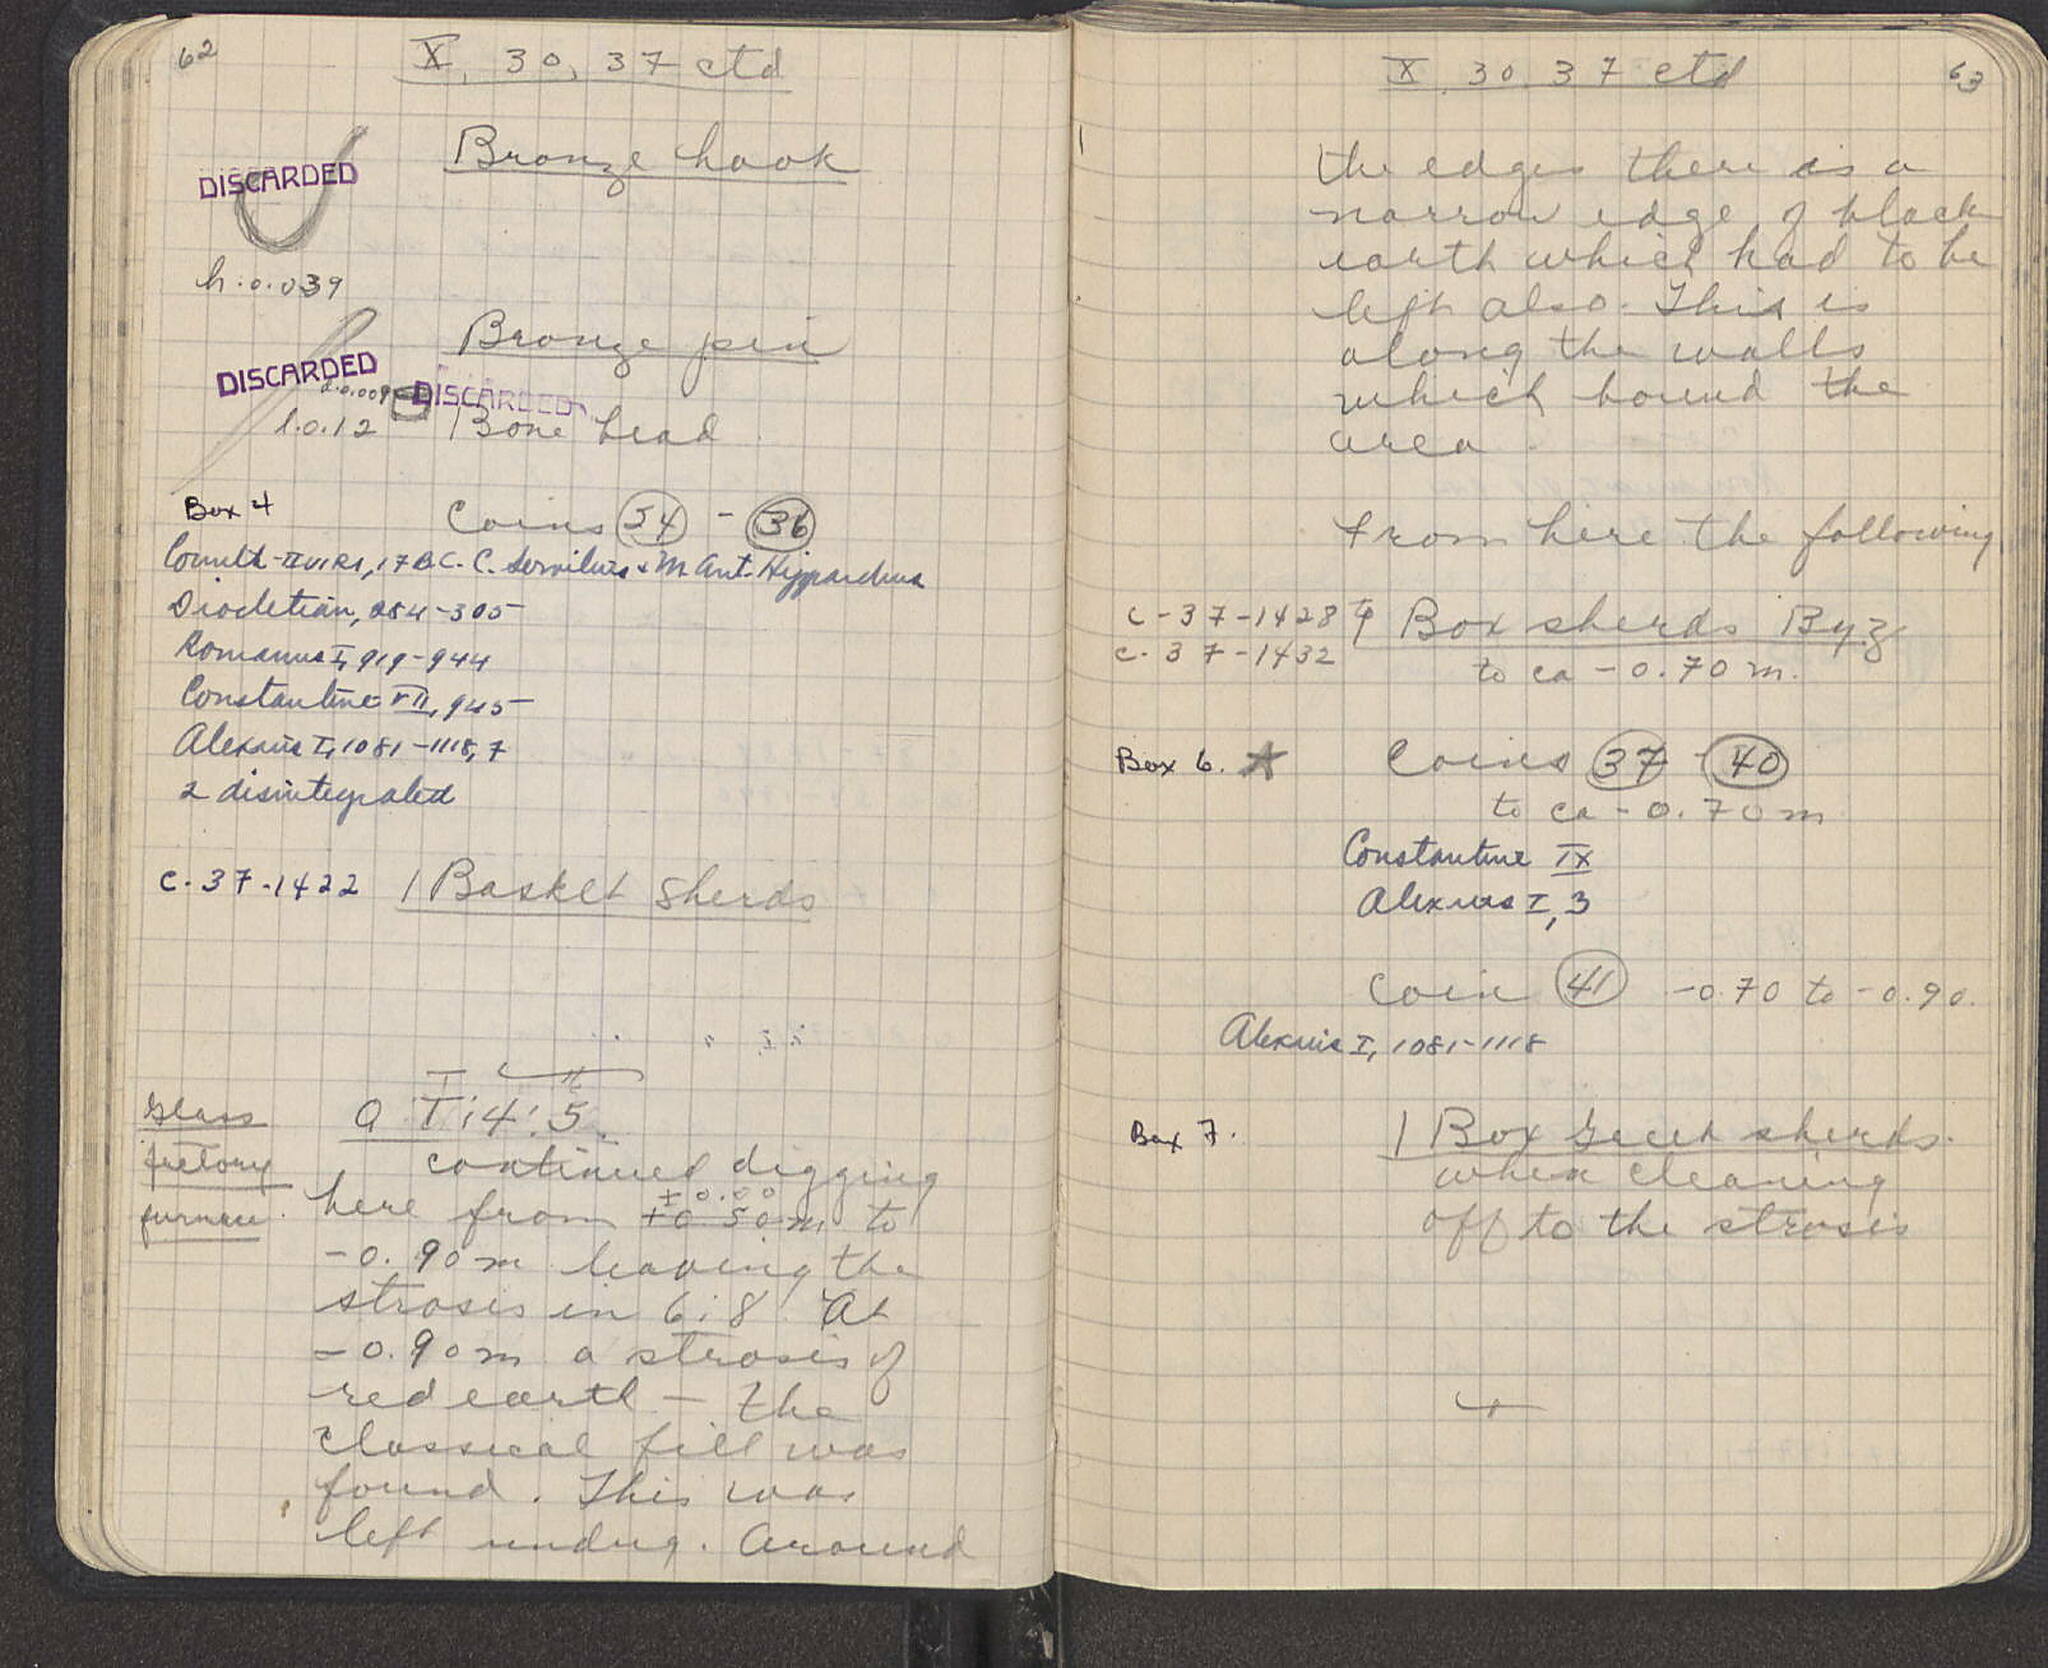 62
X, 30, 37 ctd
Bronze hook
DISCARDED
h. 0.039
Bronze pin
DISCARDED
DISCARDED
d. 0.009
l. 0.12
1 Bone bead
Box 4
Coins 24 - 36
Corinth - IIVIRI, 17 B.C. C. Servilius + M. Ant. Hipparchus
Diocletian, 284-305
Romanus I, 919-944
Constantine VII, 945
Alexius I, 1081-1118, 7
2 disintegrated
C-37-1422 1 Basket sherds
Glass
factory
furnace.
a T:4:5.
continued digging
±0.00
here from +0.50 m to
-0.90 m leaving the
strosis in 6:8. At
-0.90 m a strosis of
red earth - the
classical fill was
found. This was
left undug. Around
X 30 37 ctd
63
the edges there is a
narrow edge of black
earth which had to be
left also. This is
along the walls
which bound the
area.
From here the following
C-37-1428 to
C-37-1432
1 Box sherds Byz
to ca -0.70 m.
Box 6.
Coins 37 - 40
to ca -0.70 m
Constantine IX
Alexius I, 3
Coin 41 -0.70 to -0.90.
Alexius I, 1081-1118
Box 7.
1 Box Greek sherds.
when cleaning
off to the strosis